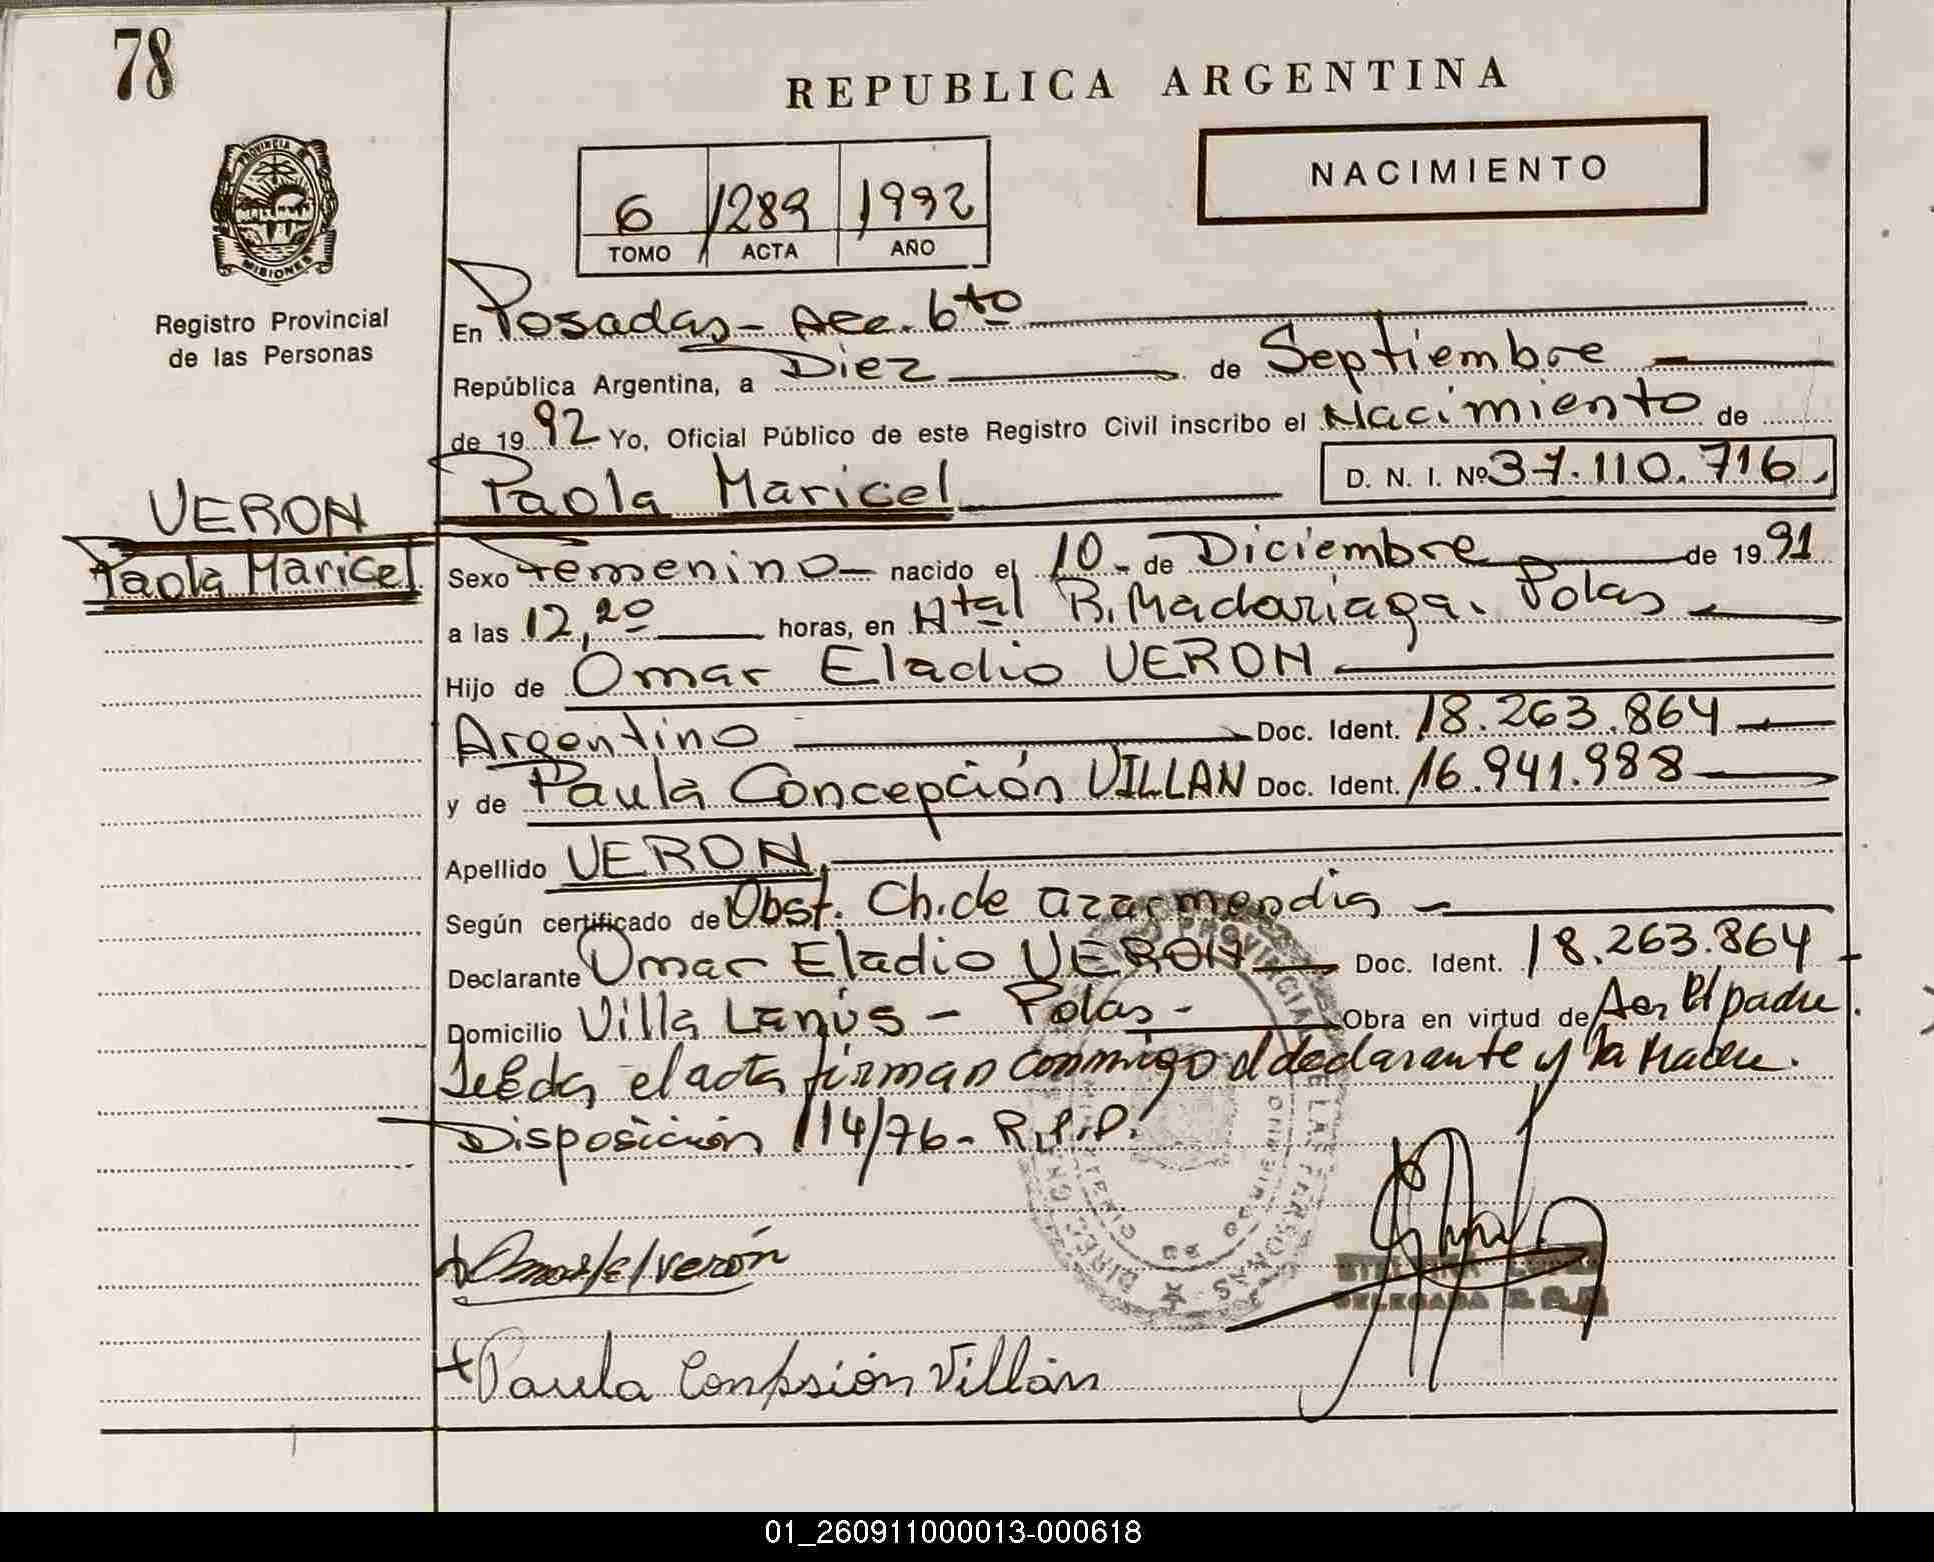 78
REPUBLICA ARGENTINA
NACIMIENTO
6 1289 1992
TOMO ACTA AÑO
PROVINCIA DE
MISIONES
Registro Provincial
de las Personas
En Posadas - Acc. 6to
República Argentina, a Diez de Septiembre
de 1992 Yo, Oficial Público de este Registro Civil inscribo el Nacimiento de
Paola Maricel D. N. I. Nº 37.110.716.
VERON
Paola Maricel
Sexo Femenino nacido el 10 - de Diciembre de 1991
a las 12,20 horas, en Htal R. Madariaga. Pdas
Hijo de Omar Eladio VERON
Argentino Doc. Ident. 18.263.864
y de Paula Concepción VILLAN Doc. Ident. 16.941.988
Apellido VERON
Según certificado de Obst. Ch. de azarmendia
Declarante Omar Eladio VERON Doc. Ident. 18.263.864
Domicilio Villa Lanús - Pdas - Obra en virtud de ser El padre.
Leída el acta firman conmigo el declarante y la Madre.
Disposición 114/76 - R.P.P.
Omar el verón
DELEGADA R.P.P.
Paula Conpsión Villán
01_260911000013-000618